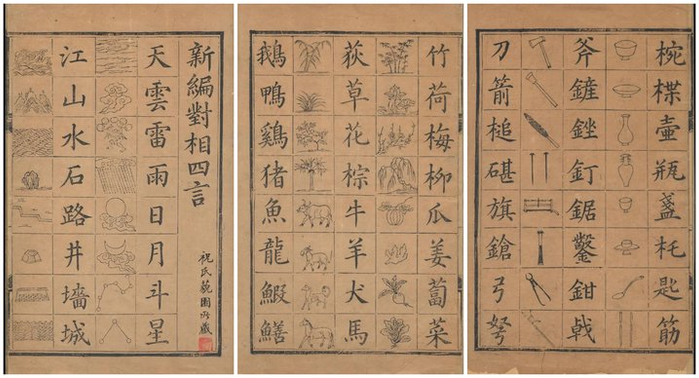 新編對相四言
祝氏
天雲雷雨日月斗星
江山水石路井墻城
竹荷梅柳瓜姜蔔菜
荻草花棕牛羊犬馬
鵝鴨鷄猪魚龍鰕鱔
椀楪壺瓶盞杔匙筯
斧鏟銼釘鋸鑿鉗戟
刀箭槌碪旗鎗弓弩